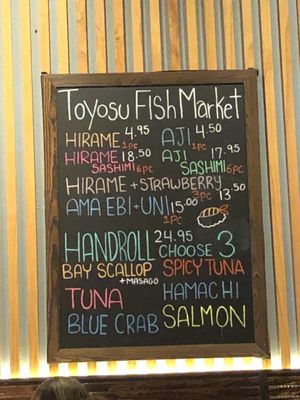 Toyosu Fish Market
HIRAME 4.95 1pc AJI 4.50 1pc
HIRAME 18.50 SASHIMI 6pc AJI 17.95 SASHIMI 6pc
HIRAME + STRAWBERRY 3pc 13.50
AMA EBI + UNI 15.00 1pc
HANDROLL 24.95 CHOOSE 3
BAY SCALLOP + MASAGO SPICY TUNA
TUNA HAMACHI
BLUE CRAB SALMON